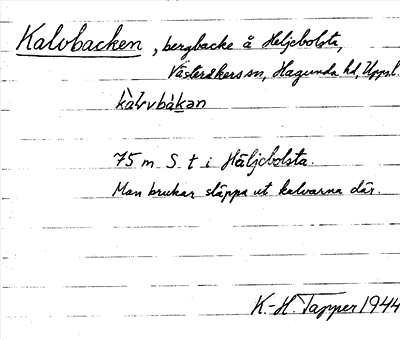 Kalvbacken, bergbacke å Heljebolsta,
Västeråkers sn, Hagunda hd, Uppsl.
kàlvbàkən
75 m S. t i Häljebolsta.
Man brukar släppa ut kalvarna där.
K.-H. Tapper 1944